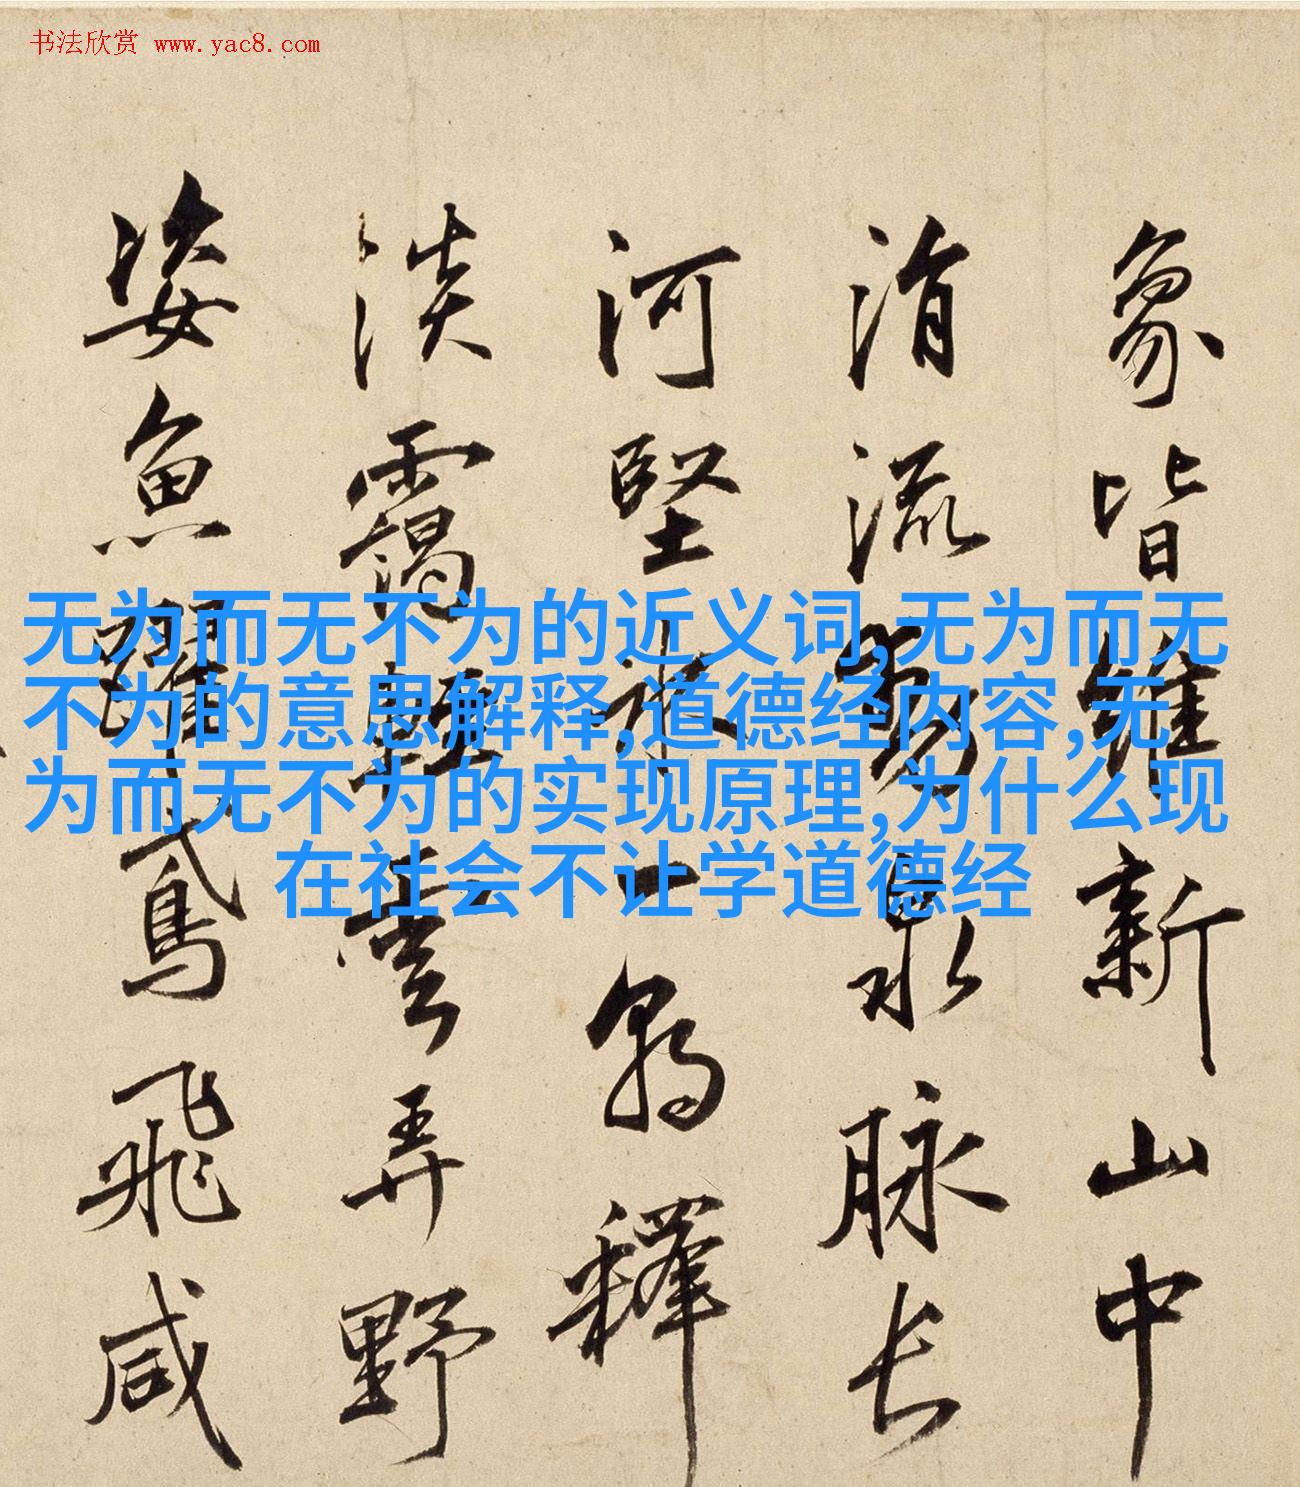 书法欣赏 www.yac8.com
象皆维新山中
涓流易泉脉长
河坚冰一朝释
淡霭轻云弄野
姿鱼跃鸢飞咸
无为而无不为的近义词,无为而无
不为的意思解释,道德经内容,无
为而无不为的实现原理,为什么现
在社会不让学道德经